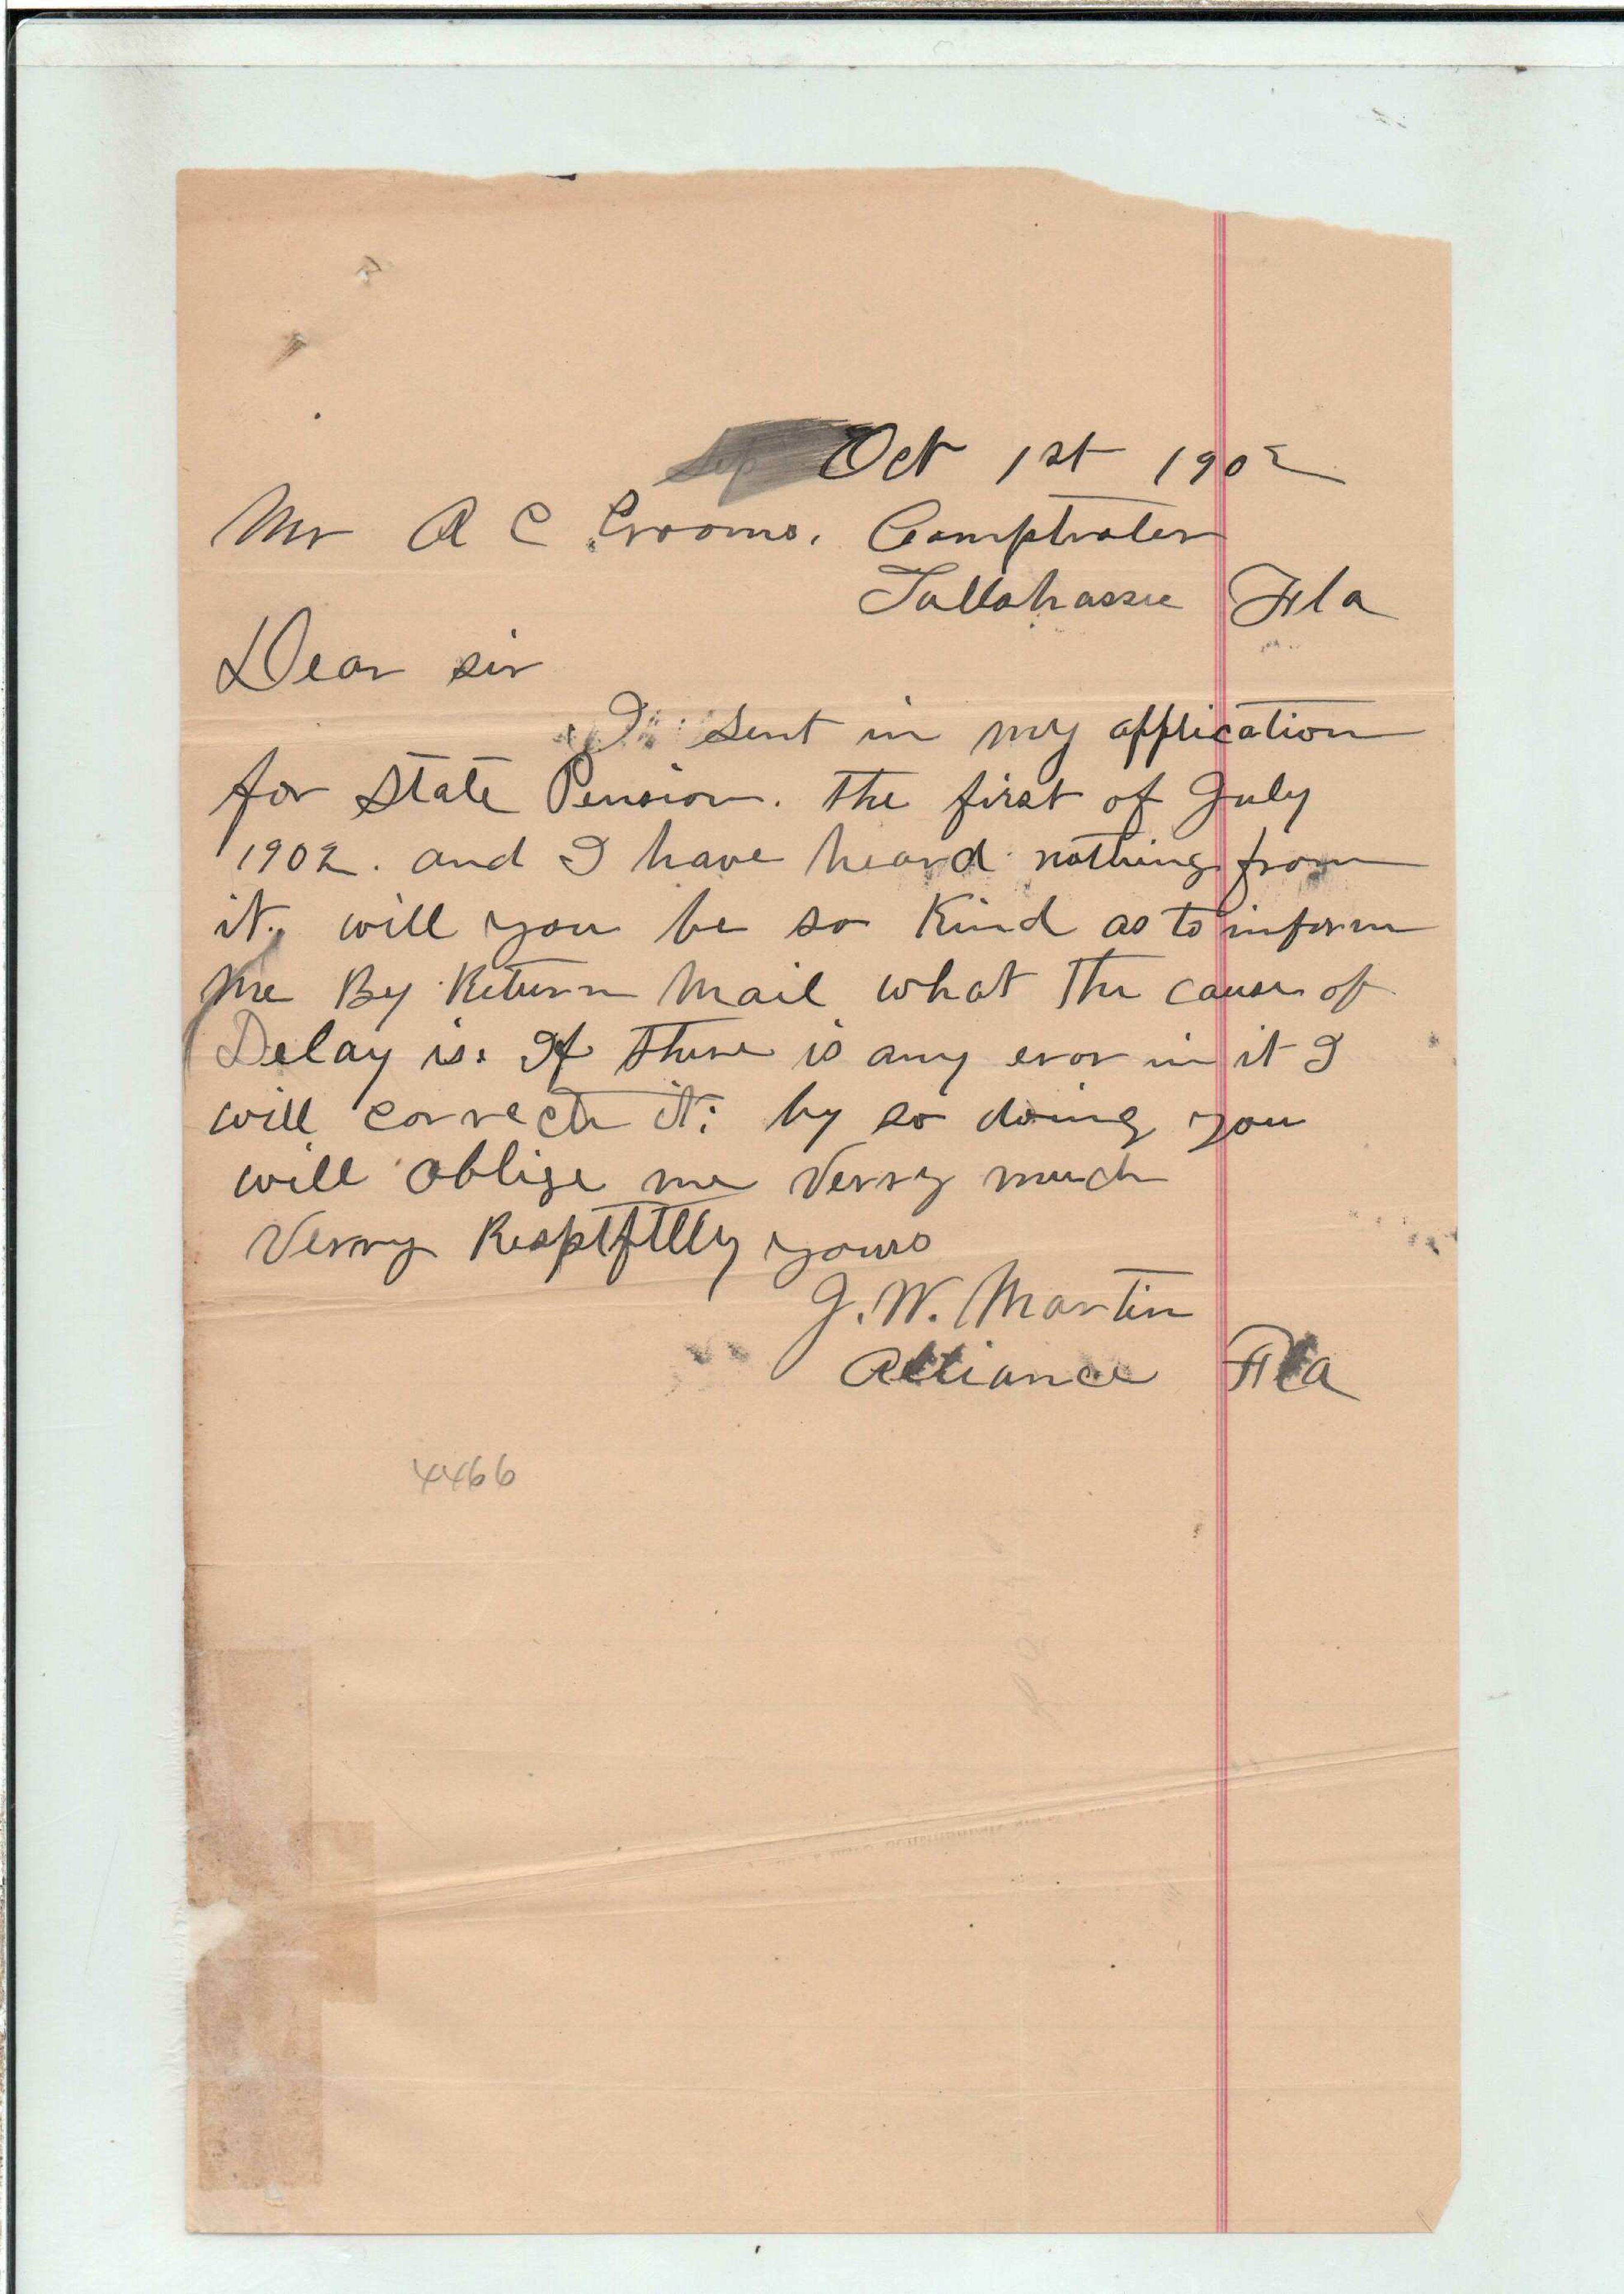 Oct 1st 1902
Mr A C Crooms. Comptroler
Tallahassee Fla
Dear sir
I sent in my application
for State Pension. the first of July
1902. and I have heard nothing from
it. will you be so Kind as to inform
me By Return Mail what the cause of
Delay is. If there is any eror in it I
will correct it: by so doing you
will oblige me Verry much
Verry Resptflly yours
J. W. Martin
Alliance Fla
4466